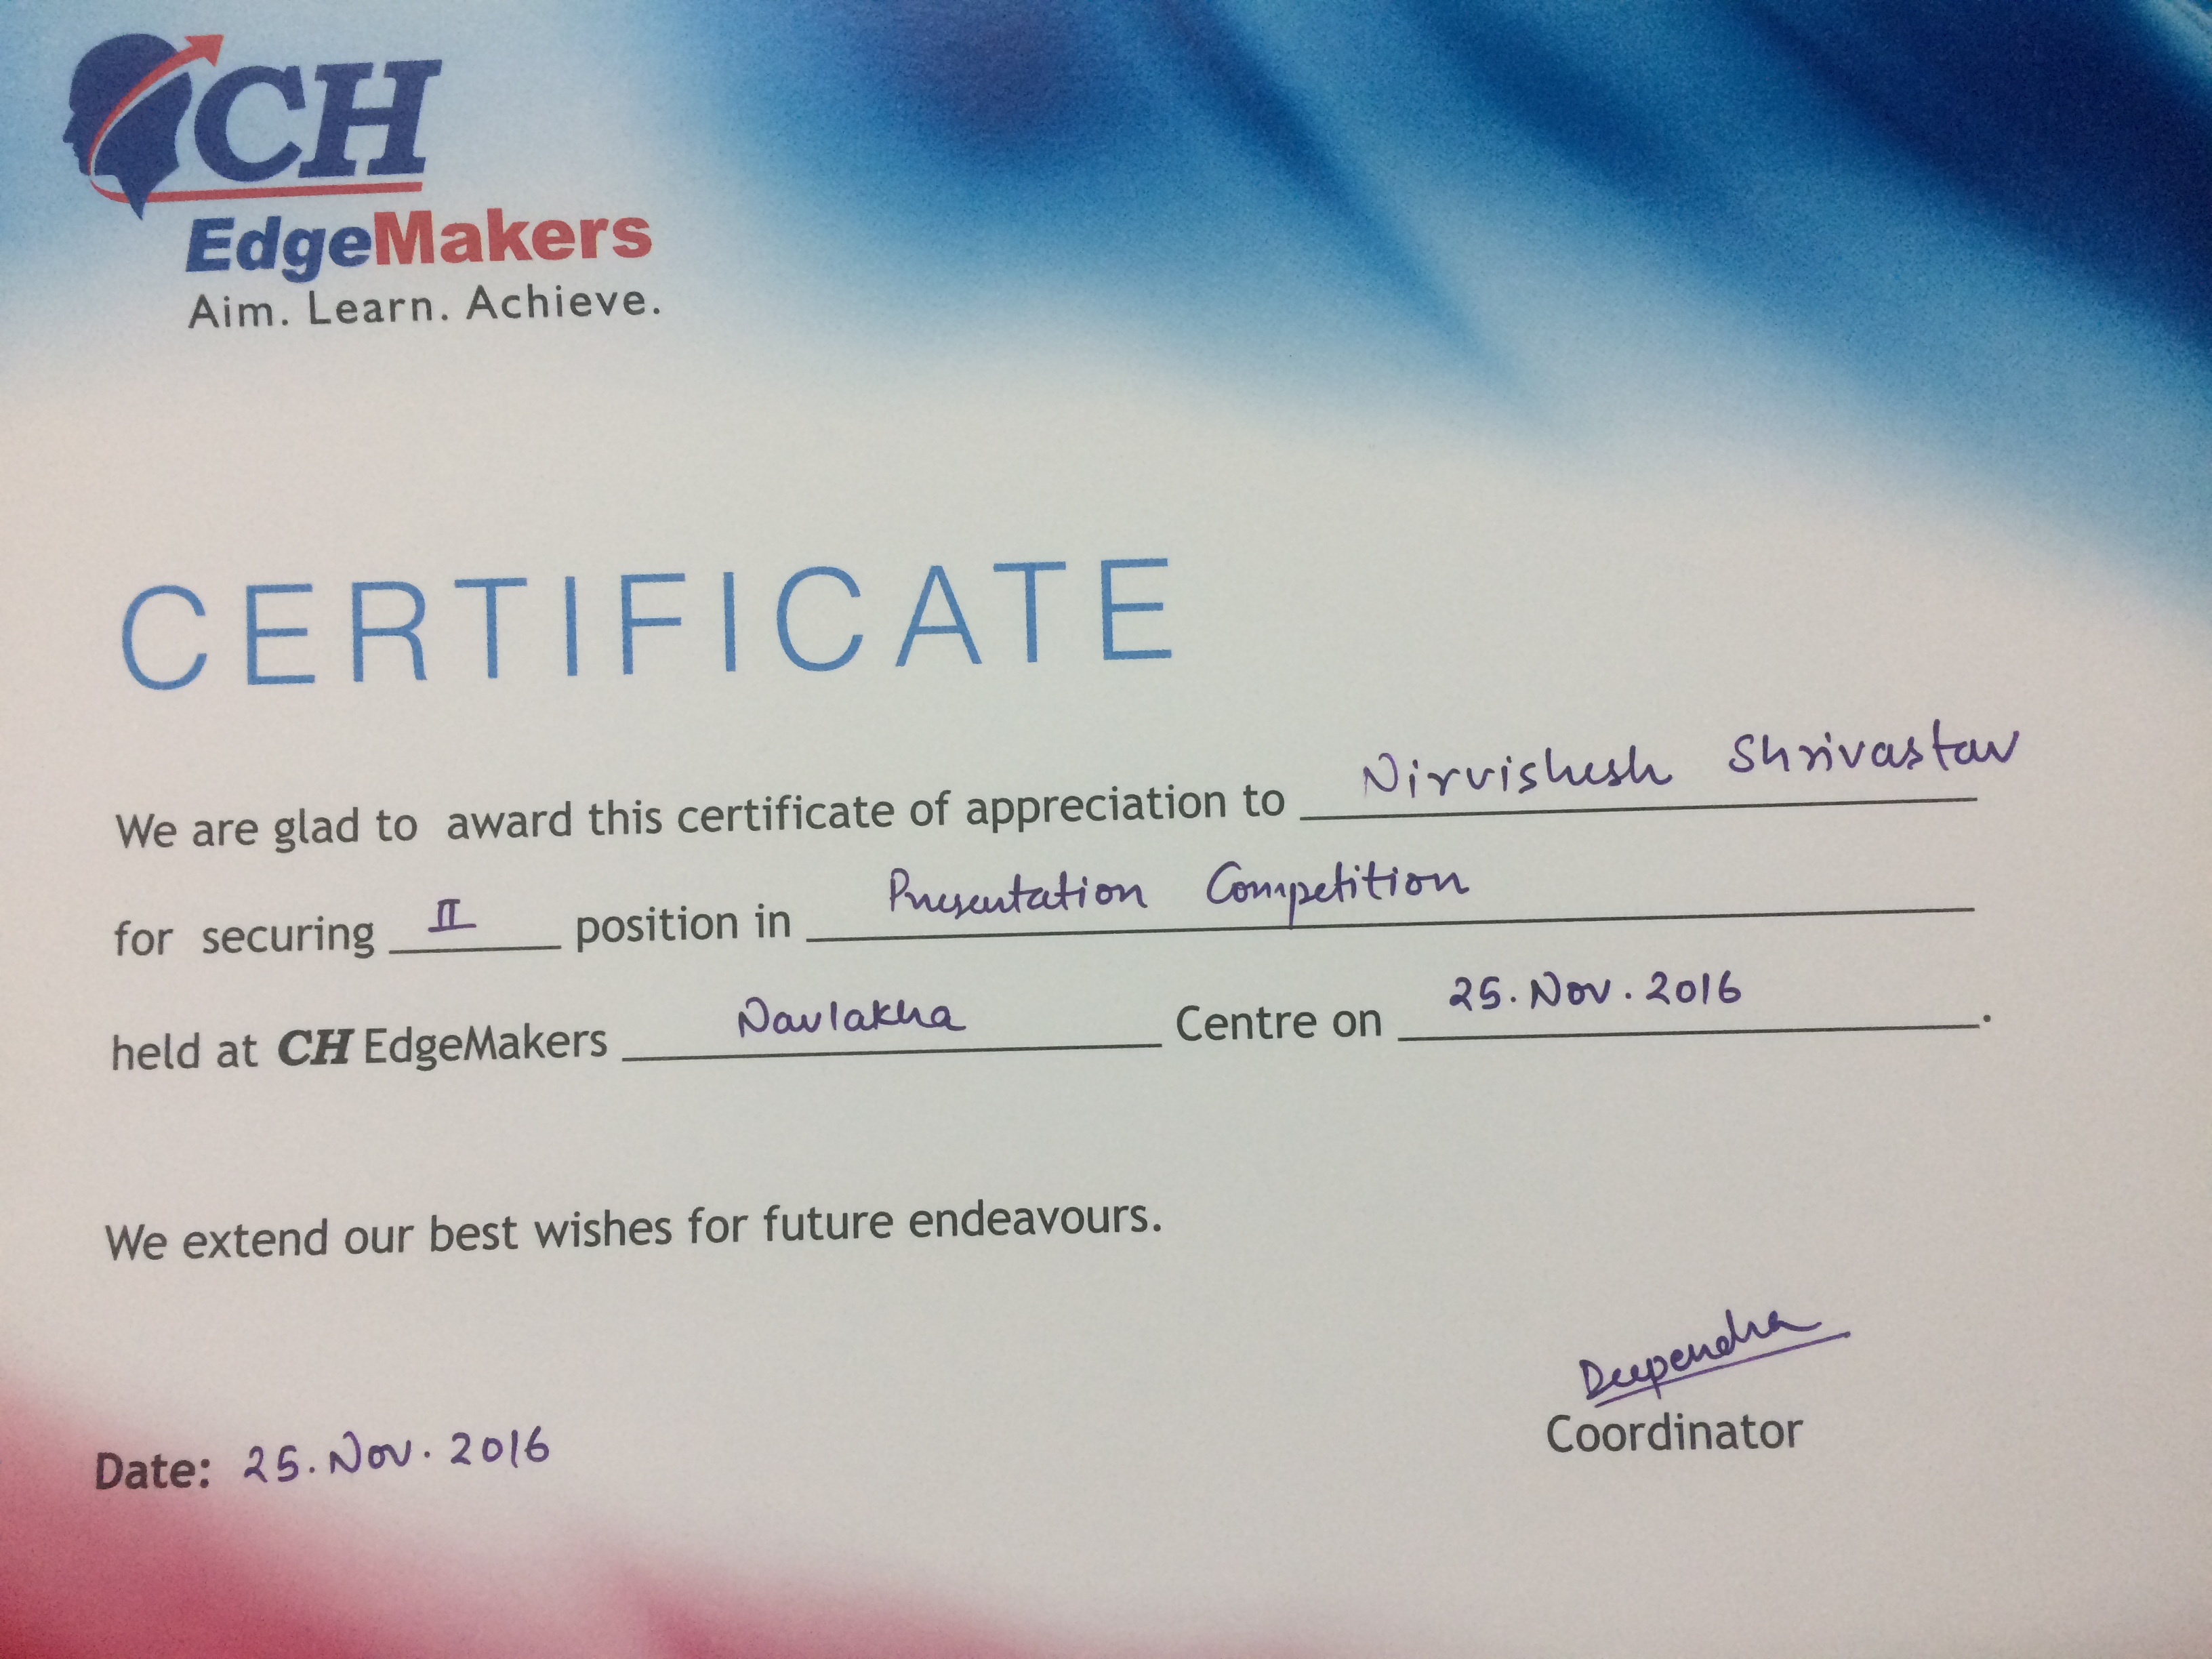 CH
EdgeMakers
Aim. Learn. Achieve.
CERTIFICATE
We are glad to award this certificate of appreciation to Nirvishesh Shrivastav
for securing II position in Presentation Competition
held at CH EdgeMakers Navlakha Centre on 25. Nov. 2016.
We extend our best wishes for future endeavours.
Deependra
Coordinator
Date: 25. Nov. 2016